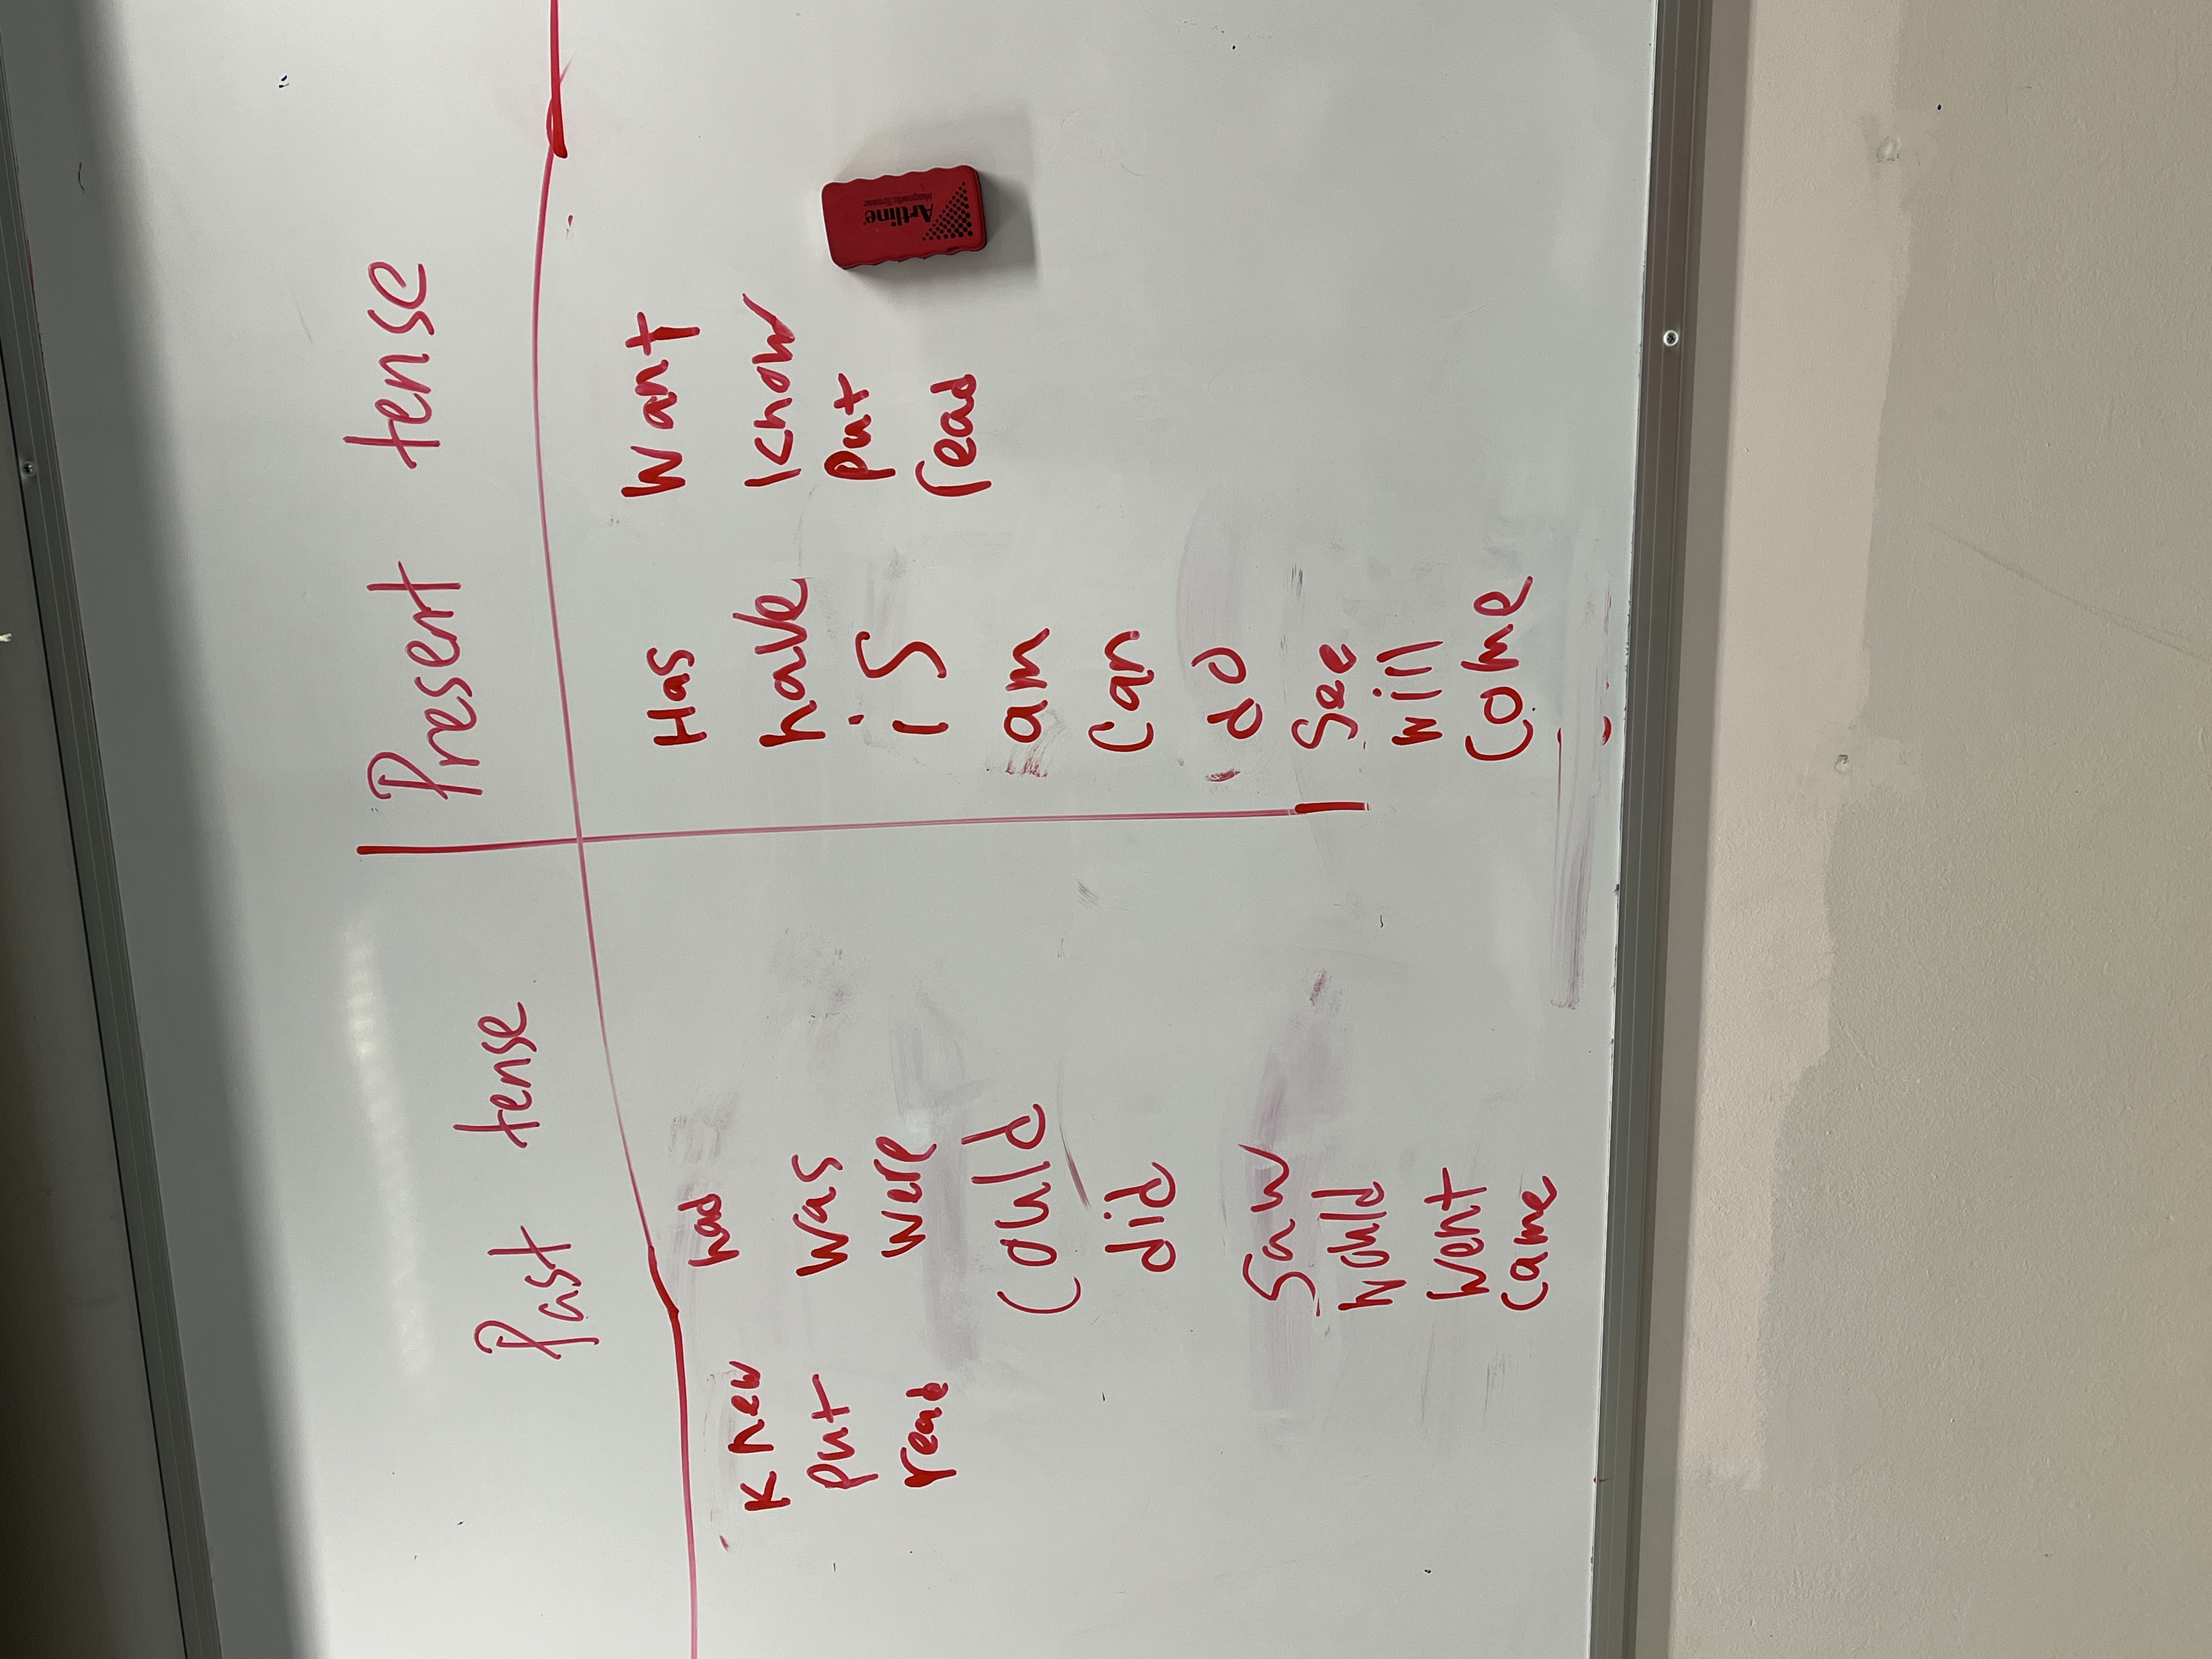 Past tense
Present tense
knew
put
read
had
was
were
could
did
saw
would
went
came
Has
have
is
am
can
do
see
will
come
want
know
put
read
Artline
Magnetic Eraser